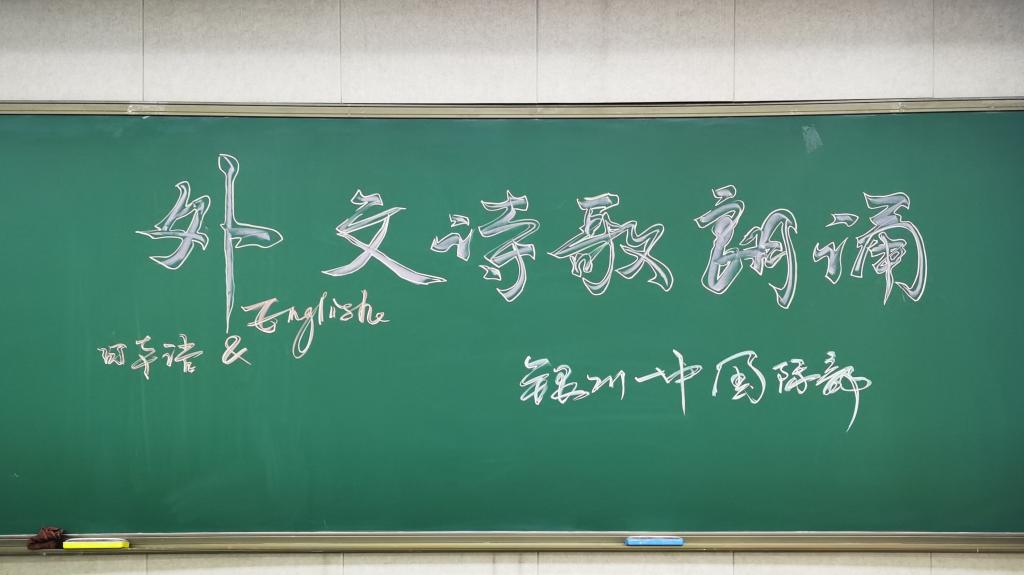 外文诗歌朗诵
日本语 & English
银川一中国际部